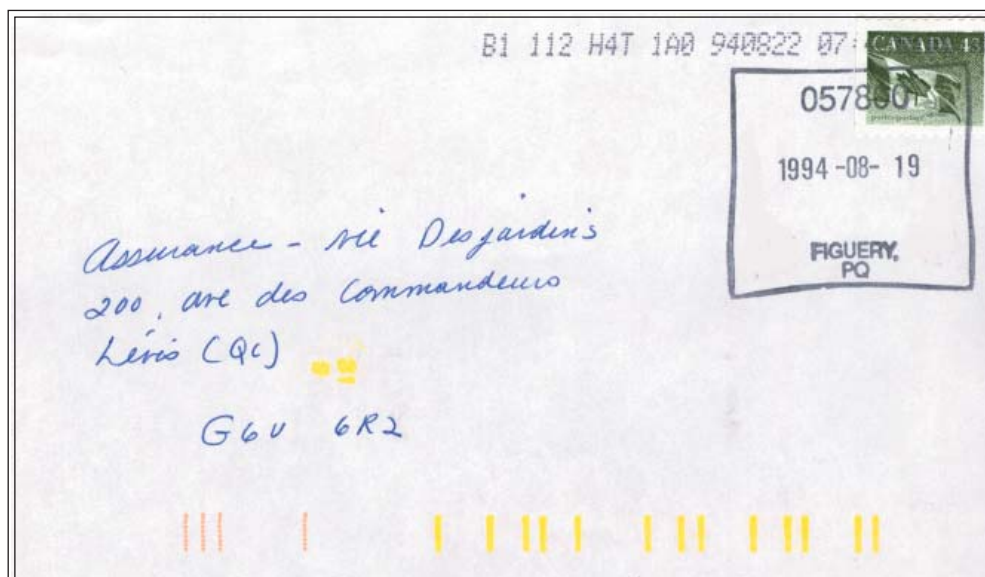 B1 112 H4T 1A0 940822 07:
CANADA 43
057800
1994-08-19
FIGUERY,
PQ
Assurance - vie Desjardins
200, ave des Commandeurs
Lévis (Qc)
G6V 6R2